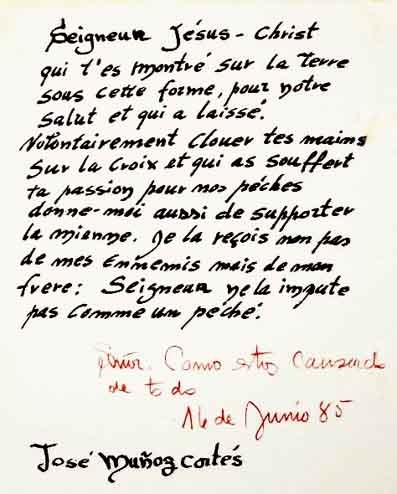 Seigneur Jésus-Christ
qui t'es montré sur la terre
sous cette forme, pour notre
salut et qui a laissé.
Volontairement clouer tes mains
sur la croix et qui as souffert
ta passion pour nos péchés
donne-moi aussi de supporter
la mienne. Je la reçois non pas
de mes Ennemis mais de mon
frere: Seigneur ne la impute
pas comme un péché.
Señor. Como estoy cansado
de todo
14 de Junio 85
José Muñoz Cortés